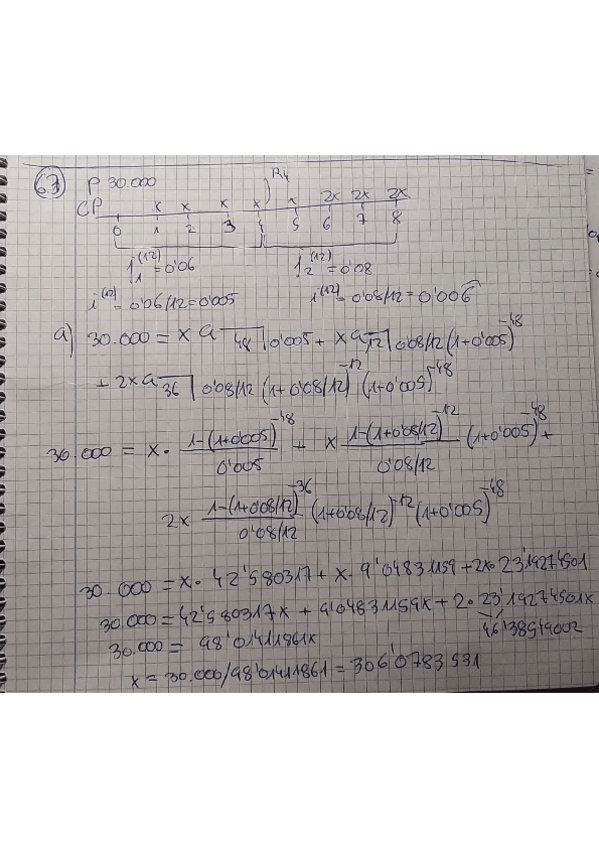 63 P 30.000
R4
CP x x x x x 2x 2x 2x
0 1 2 3 4 5 6 7 8
j₁⁽¹²⁾=0'06 j₂⁽¹²⁾=0'08
i⁽¹²⁾=0'06/12=0'005 i⁽¹²⁾=0'08/12=0'006
a) 30.000 = x a 48┐0'005 + x a 12┐0'08/12 (1+0'005)⁻⁴⁸
+ 2x a 36┐0'08/12 (1+0'08/12)⁻¹² (1+0'005)⁻⁴⁸
30.000 = x · 1-(1+0'005)⁻⁴⁸ / 0'005 + x 1-(1+0'08/12)⁻¹² / 0'08/12 (1+0'005)⁻⁴⁸ +
2x 1-(1+0'08/12)⁻³⁶ / 0'08/12 (1+0'08/12)⁻¹² (1+0'005)⁻⁴⁸
30.000 = x · 42'580317 + x · 9'04831159 + 2x · 23'19274501
30.000 = 42'580317x + 9'04831159x + 2 · 23'19274501x
46'38549002
30.000 = 98'01411861x
x = 30.000/98'01411861 = 306'0783531